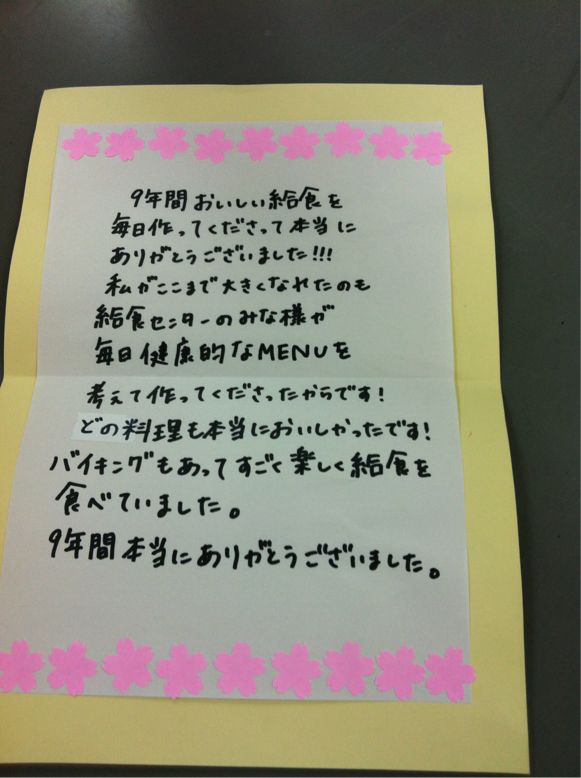 9年間おいしい給食を
毎日作ってくださって本当に
ありがとうございました!!!
私がここまで大きくなれたのも
給食センターのみな様が
毎日健康的なMENUを
考えて作ってくださったからです!
どの料理も本当においしかったです!
バイキングもあってすごく楽しく給食を
食べていました。
9年間本当にありがとうございました。